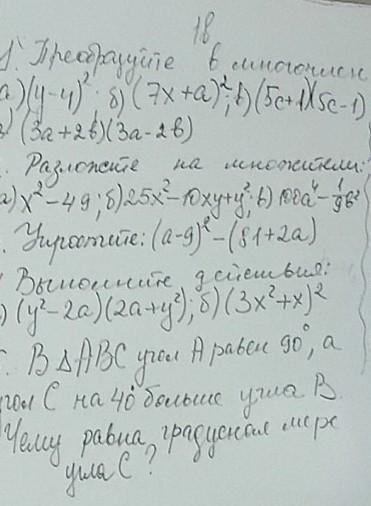 1в
1. Преобразуйте в многочлен
а) (y-4)²; б) (7x+a)²; в) (5c+1)(5c-1)
) (3a+2b)(3a-2b)
. Разложите на множители:
а) x²-49; б) 25x²-10xy+y²; в) 100a⁴-1/9b²
. Упростите: (a-9)²-(81+2a)
Выполните действия:
) (y²-2a)(2a+y²); б) (3x²+x)²
. В ΔABC угол A равен 90°, а
угол C на 40° больше угла B.
Чему равна градусная мера
угла C?